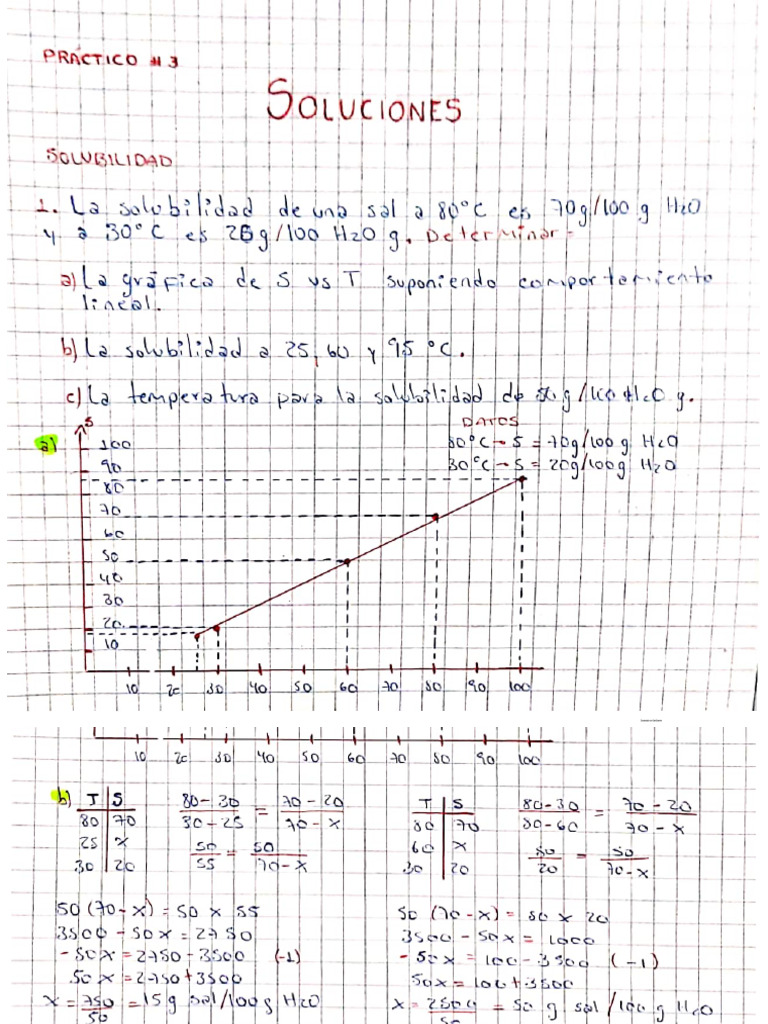 PRÁCTICO #3
SOLUCIONES
SOLUBILIDAD
1. La solubilidad de una sal a 80°C es 70g/100 g H2O
y a 30°C es 20g/100 H2O g. Determinar-
a) La gráfica de S vs T suponiendo comportamiento
lineal.
b) La solubilidad a 25, 60 y 95 °C.
c) La temperatura para la solubilidad de 50 g/100 H2O g.
DATOS
80°C → S = 70g/100g H2O
30°C → S = 20g/100g H2O
a)
S
100
90
80
70
60
50
40
30
20
10
10 20 30 40 50 60 70 80 90 100
10 20 30 40 50 60 70 80 90 100
b)
T S
80 70
25 x
30 20
80-30 = 70-20
30-25 70-x
50 = 50
55 70-x
50 (70-x) = 50 x 55
3500 - 50x = 2750
-50x = 2750 - 3500 (-1)
50x = 2750 + 3500
x = 750 = 15g sal/100g H2O
50
T S
80 70
60 x
30 20
80-30 = 70-20
80-60 70-x
50 = 50
20 70-x
50 (70-x) = 50 x 20
3500 - 50x = 1000
-50x = 100 - 3500 (-1)
50x = 100 + 3500
x = 2500 = 50 g sal/100 g H2O
50